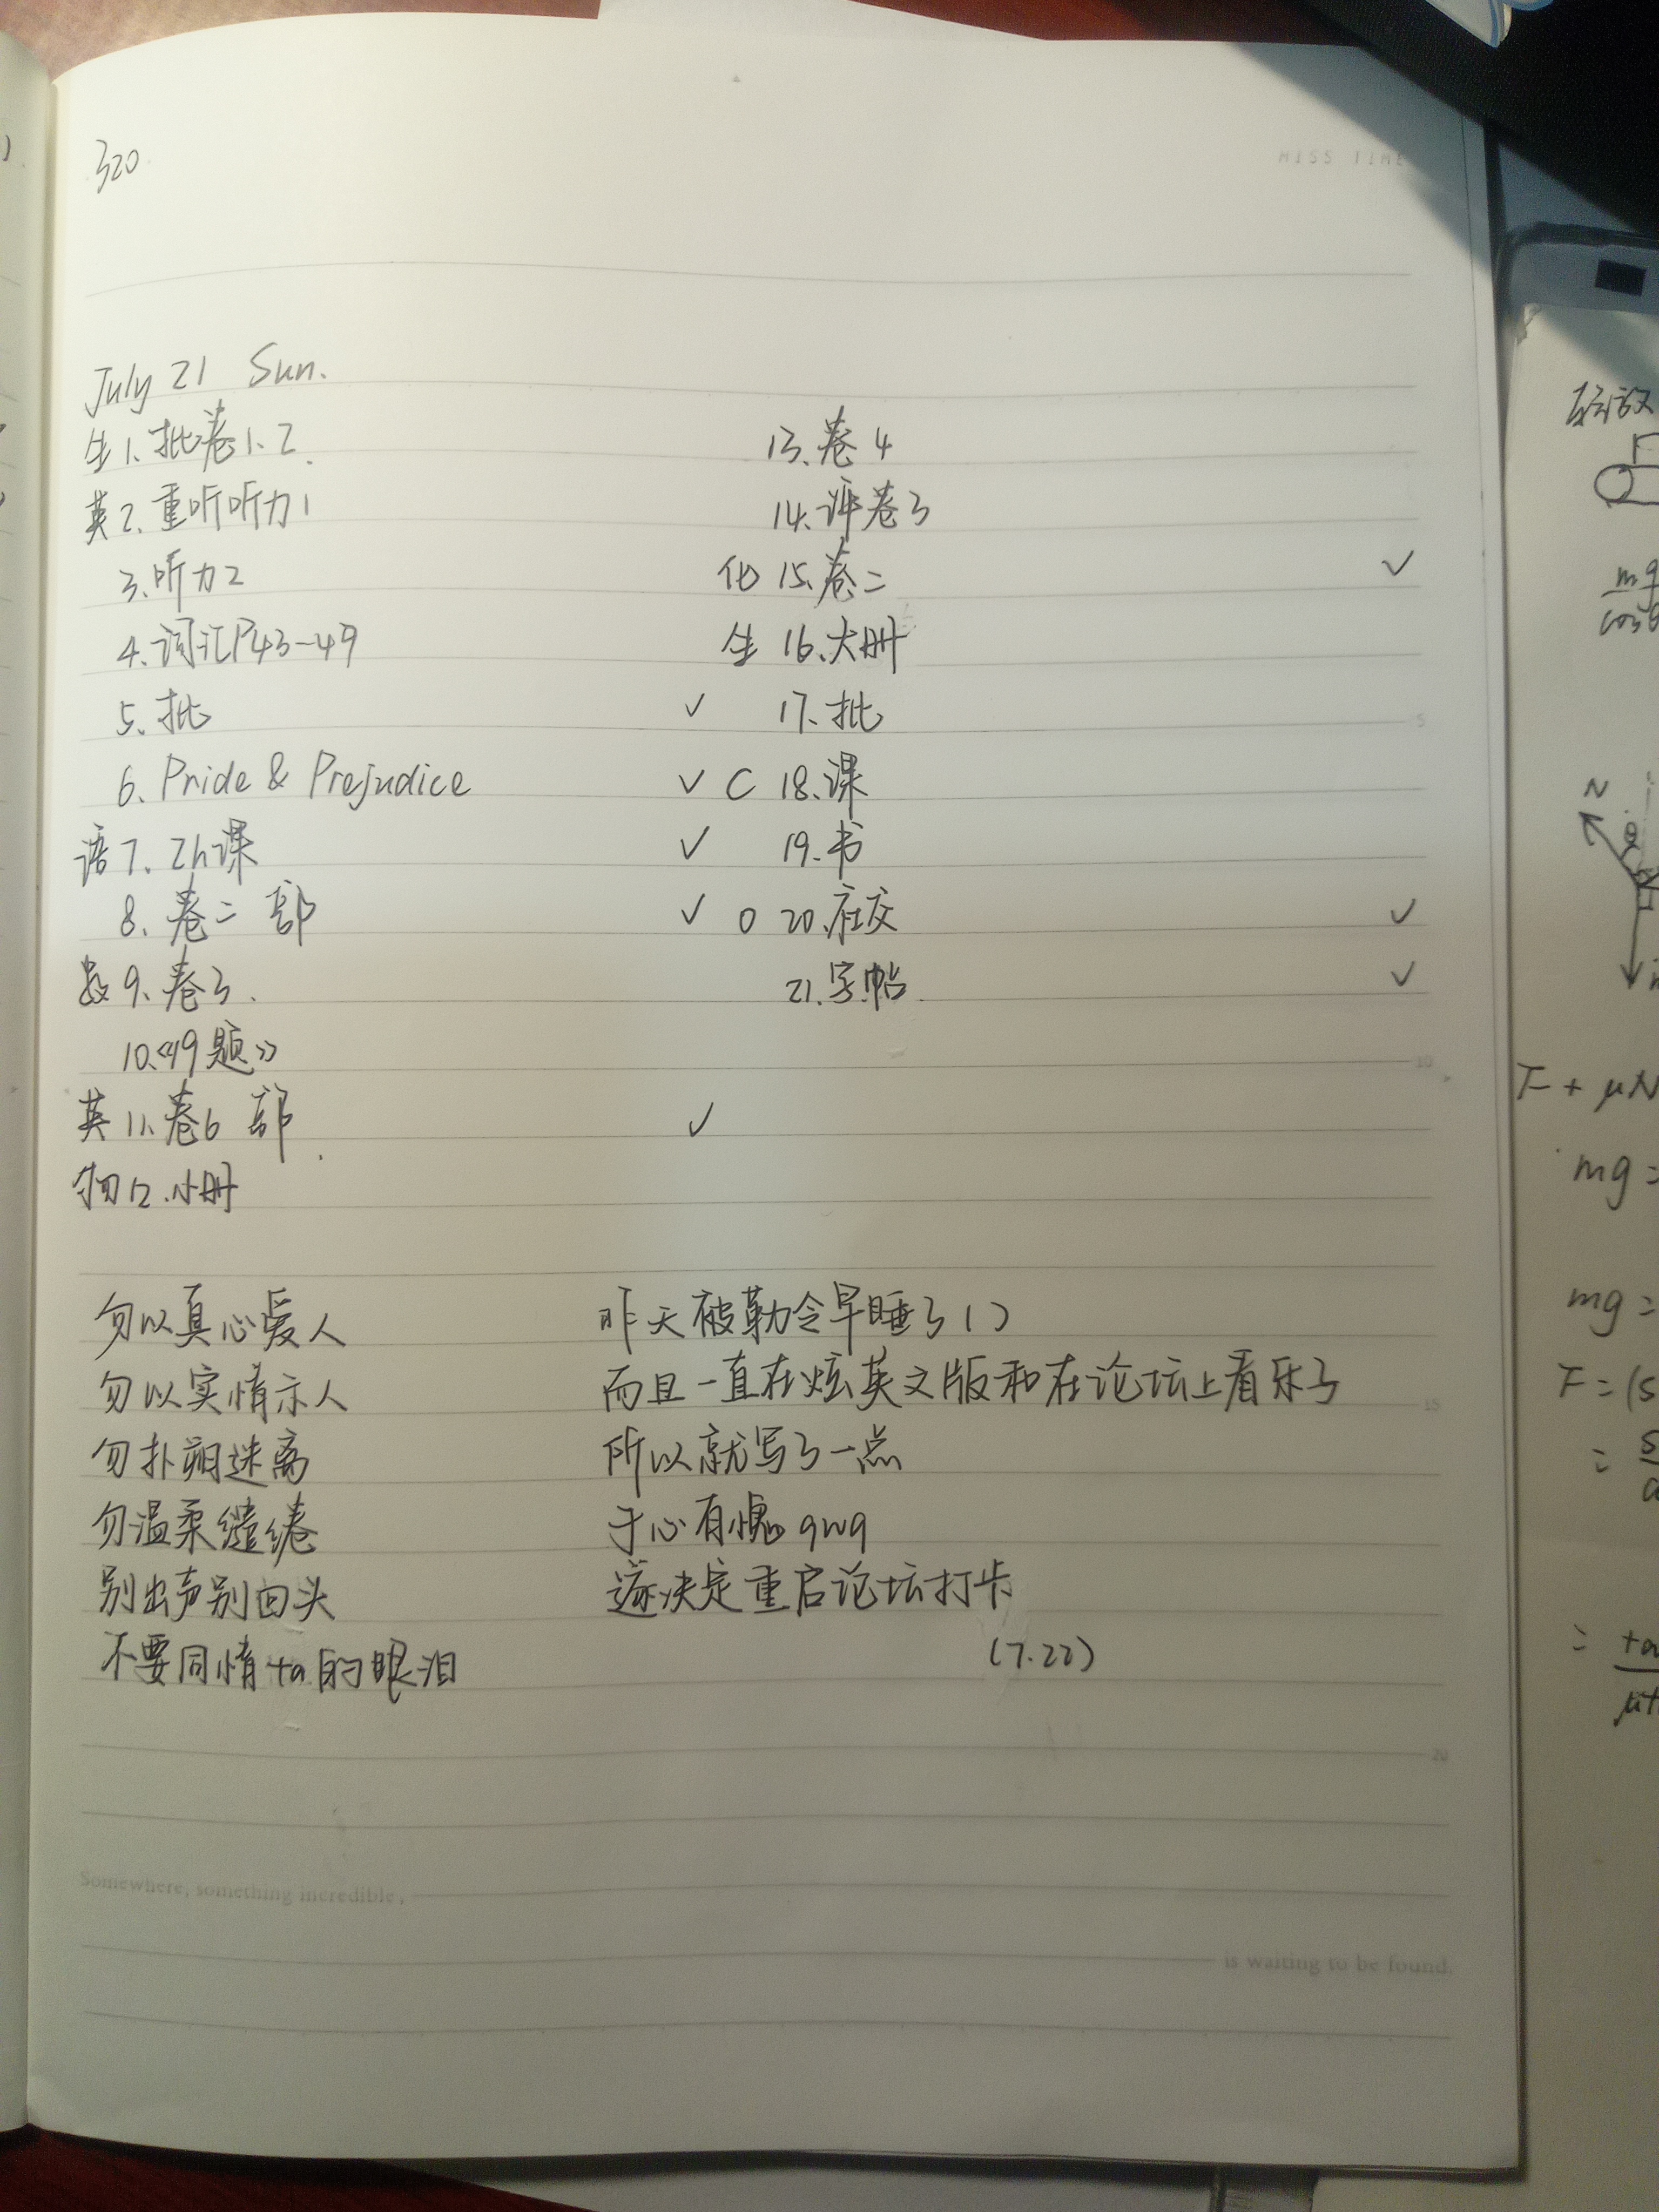 320
MISS TIME
July 21 Sun.
生 1. 批卷1.2
英 2. 重听听力1
3. 听力2
4. 词汇P43-49
5. 批 ✓
6. Pride & Prejudice ✓
语 7. 2h课 ✓
8. 卷二 部 ✓
数 9. 卷3.
10.《49题》
英 11. 卷6 部 ✓
物 12. 小册
13. 卷4
14. 评卷3
化 15. 卷二 ✓
生 16. 大册
17. 批
C 18. 课
19. 书
O 20. 社交 ✓
21. 字帖 ✓
勿以真心爱人
勿以实情示人
勿扑朔迷离
勿温柔缱绻
别出声别回头
不要同情ta的眼泪
昨天被勒令早睡了()
而且一直在炫英文版和在论坛上看乐了
所以就写了一点
于心有愧qwq
遂决定重启论坛打卡
(7.22)
5
10
15
20
Somewhere, something incredible,
is waiting to be found.
mg
cosθ
N
θ
F + μN
mg =
mg =
F = (s
=
=